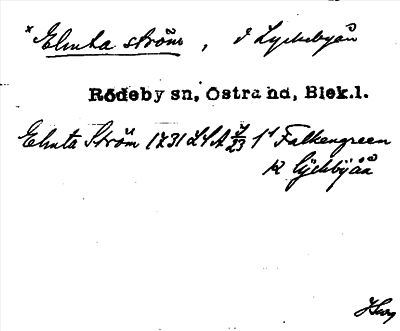 * Elmta ström, i Lyckebyån
Rödeby sn, Östra hd, Blek.l.
Elmta Ström 1731 LSA 7/23 1st Falkengreen
K Lyckbyåå